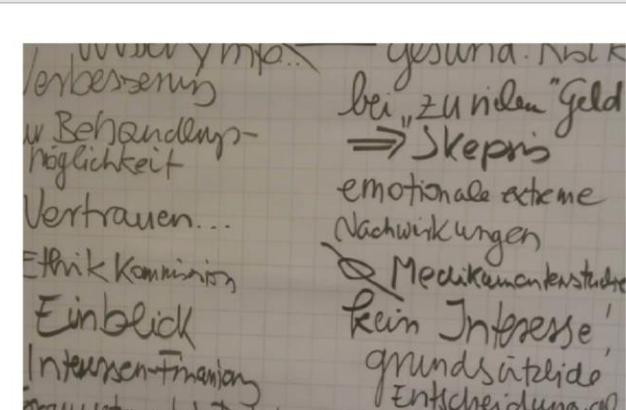 Verbesserung
Behandlungs-
möglichkeit
Vertrauen...
Ethik Kommission
Einblick
Interessen-Finanzierung
gesund. Risik
bei „zu vielen" Geld
⇒ Skepsis
emotionale extreme
Nachwirkungen
Medikamentenstudie
kein Interesse!
grundsätzliche
Entscheidung